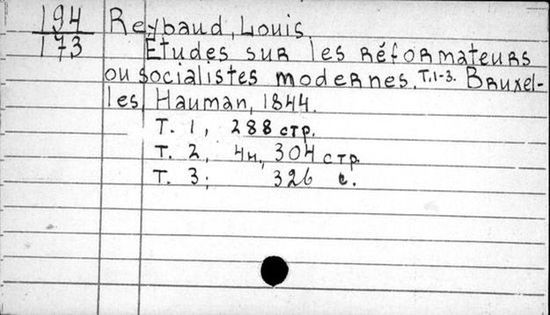 194 Reybaud, Louis.
173 Etudes sur les réformateurs
ou socialistes modernes. T.1-3. Bruxel-
les, Hauman, 1844.
T. 1, 288 стр.
T. 2, 4н, 304 стр.
T. 3; 326 с.